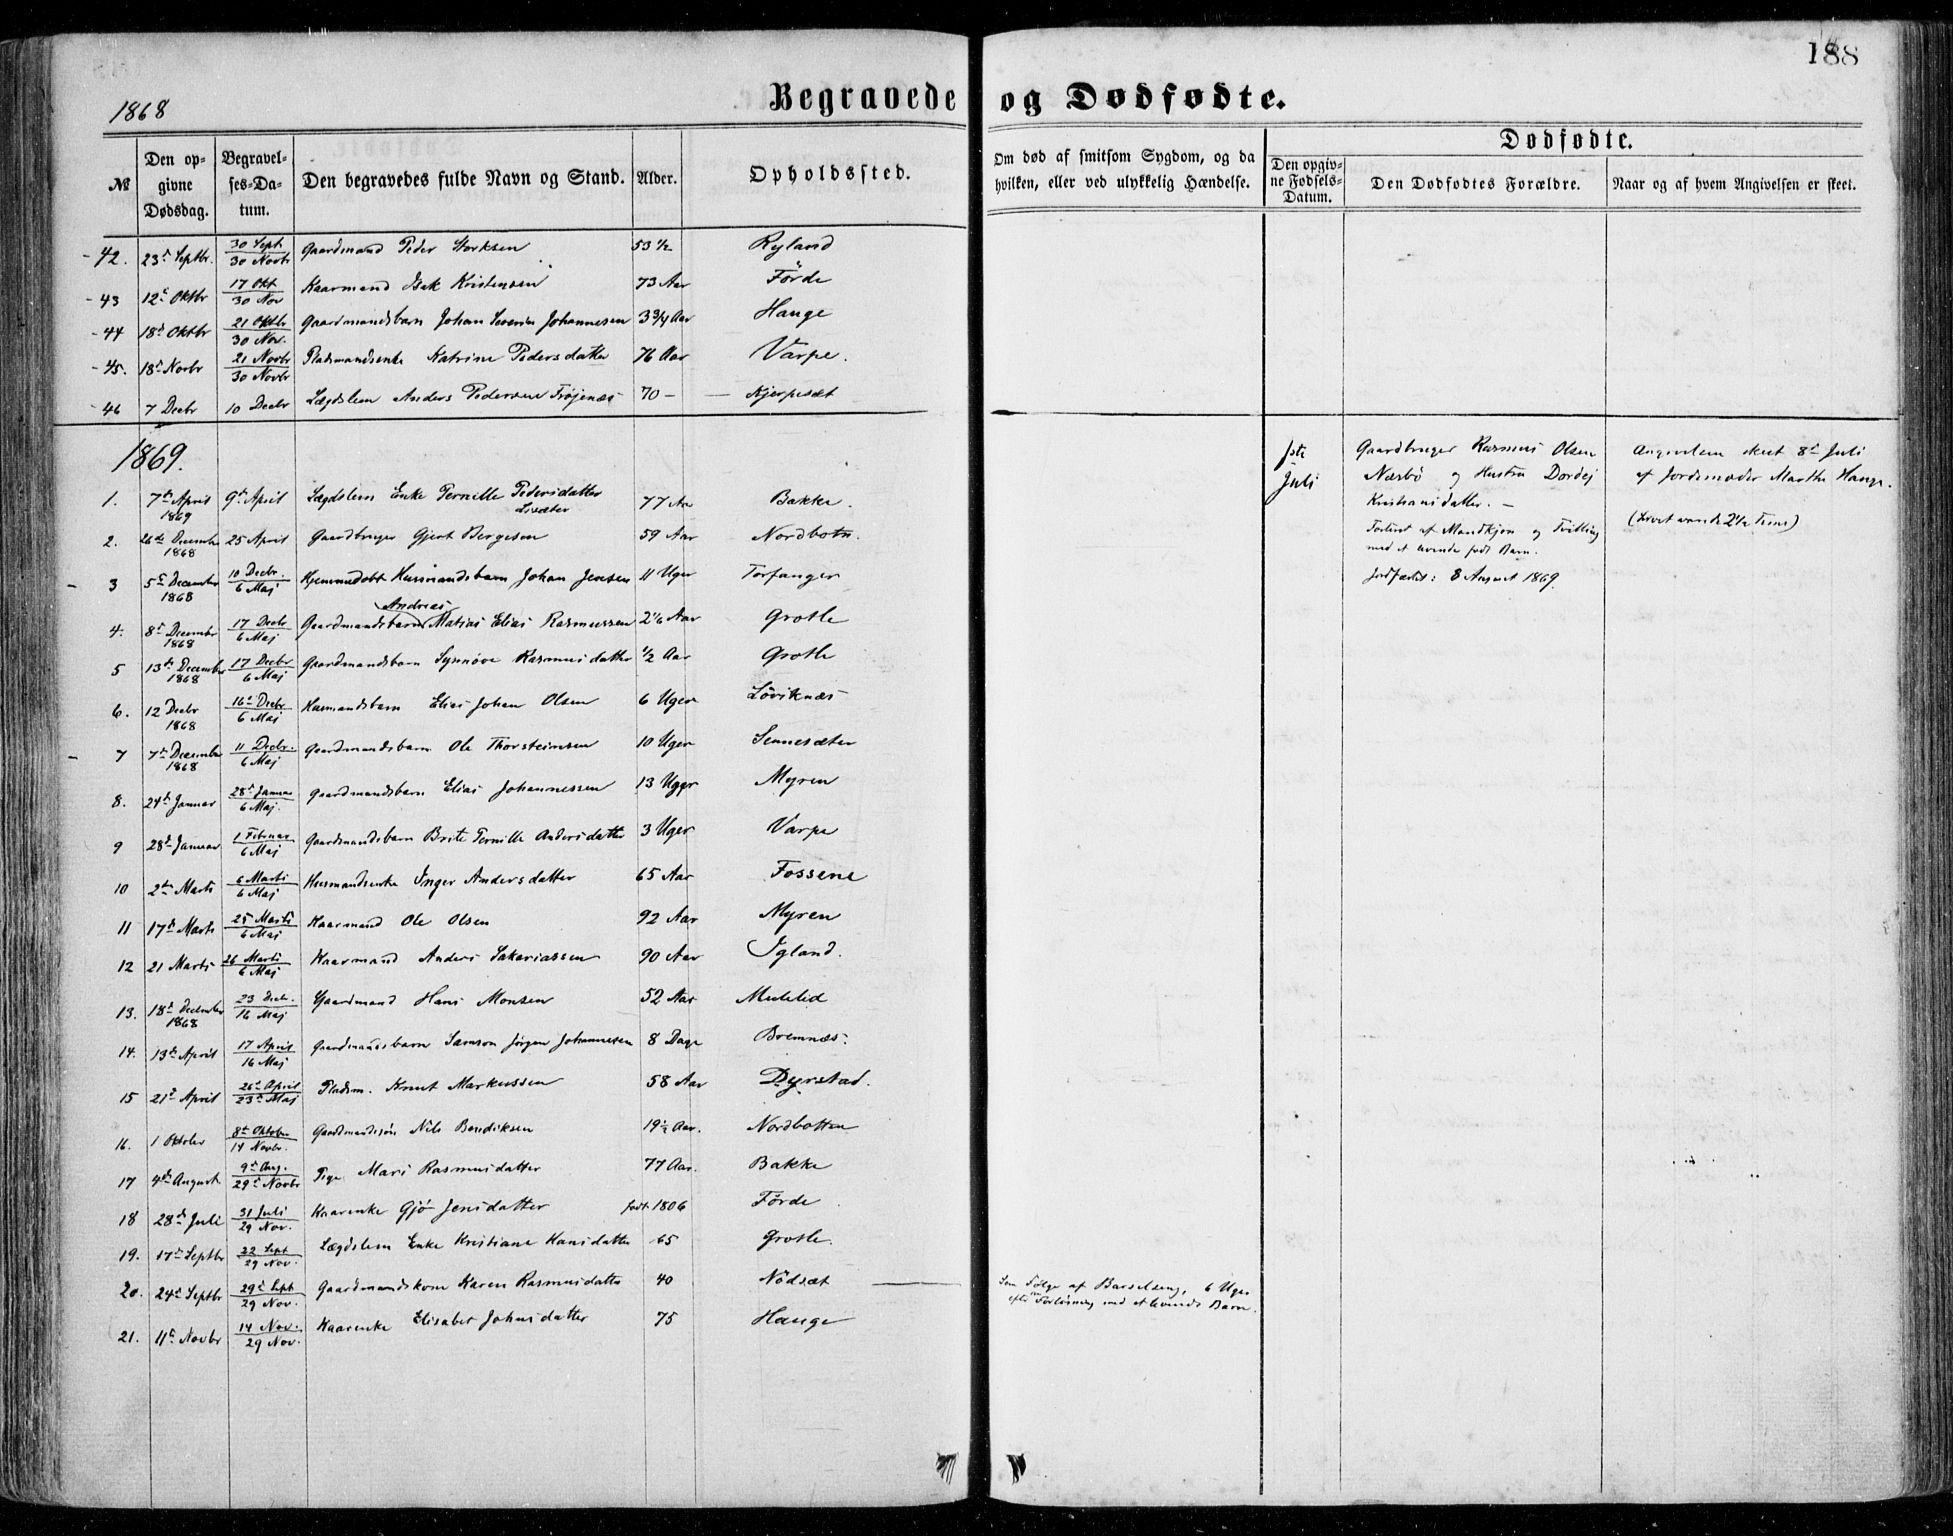 188
1868
Begravede og Dødfødte.
№ Den opgivne Dødsdag. Begravelses-Datum. Den begravedes fulde Navn og Stand. Alder. Opholdssted. Om død af smitsom Sygdom, og da hvilken, eller ved ulykkelig Hændelse. Dødfødte. Den opgivne Fødsels-Datum. Den Dødfødtes Forældre. Naar og af hvem Angivelsen er skeet.
42. 23d Septbr. 30 Sept 30 Novbr Gaardmand Peder Storksen 53 1/2 Ryland
43 12t Oktbr 17 Okt 30 Nov Kaarmand Isak Kristensen 73 Aar Förde
44 18d Oktbr 21 Oktbr 30 Nov. Gaardmandsbarn Johan Severin Johannesen 3 3/4 Aar Hauge
45. 18d Novbr 21 Novbr 30 Novbr Pladsmandsenke Katrine Pedersdatter 76 Aar Varpe.
46 7 Decbr 10 Decbr Lægdslem Anders Pedersen Frøjenæs 70 — Kjerpesæt
1869.
1. 7de April 1869 9de April Lægdslem Enke Pernille Pedersdatter Livæter 77 Aar Bakke.
2. 26de December 1868 25 April Gaardbruger Gjert Bergesen 59 Aar Nordbotn.
3 5t December 1868 10 Decbr. 6 Maj Hjemmedøbt Husmandsbarn Johan Jensen 11 Uger Torfanger
4. 8d December 1868 17 Decbr 6 Maj Gaardmandsbarn Andreas Matias Elias Rasmussen 2 1/6 Aar Grotle
5 13de December 1868 17 Decbr 6 Maj Gaardmandsbarn Synnøve Rasmusdatter 1/2 Aar Grotle
6. 12 Decbr 1868 16t Decbr 6 Maj Husmandsbarn Elias Johan Olsen 6 Uger Löviknæs
7 7de December 1868 11 Decbr. 6 Maj Gaardmandsbarn Ole Thorsteinsen 10 Uger Sennesæter
8. 24d Januar 28d Januar 6 Maj. Gaardmandsbarn Elias Johannessen 13 Uger Myren
9 28d Januar 1 Februar 6 Maj Gaardmandsbarn Brite Pernille Andersdatter 3 Uger Varpe
10 2de Marts 6 Marts 6 Maj Husmandsenke Inger Andersdatter 65 Aar Fossene
11 17d Marts 25 Marts 6 Maj Kaarmand Ole Olsen 92 Aar Myren
12 21 Marts 26 Marts 6 Maj Kaarmand Anders Sakariassen 90 Aar Igland.
13. 18d December 1868 23 Decbr. 16 Maj Gaardmand Hans Monsen 52 Aar Midtlid
14. 13de April 17 April 16 Maj Gaardmandsbarn Samson Jörgen Johannesen 8 Dage Bremnæs.
15 21d April 26t April 23d Maj Pladsm. Knut Markussen 58 Aar Dyrstad.
16. 1 Oktober 8de Oktober 14 Novbr. Gaardmandssøn Nils Bendiksen 19 1/2 Aar. Nordbotten
17 4de August 9t Aug. 29t Novbr Pige Mari Rasmusdatter 77 Aar. Bakke
18 28d Juli 31 Juli 29 Nov. Kaarenke Gjø Jensdatter født 1806 Förde
19. 17d Septbr 22 Sept 29 Nov. Lægdslem Enke Kristiane Hansdatter 65 Grotle.
20. 24d Septbr 29t Sept 29 Nov. Gaardmandskone Karen Rasmusdatter 40 Nödsæt
21. 11t Novbr 14 Nov. 29 Nov. Kaarenke Elisabet Johnsdatter 75 Hauge
Som Følge af Barselseng, 6 Uger
efter Forløsning med et levende Barn.
1ste Juli
Gaardbruger Rasmus Olsen
Næsbö og Hustru Dordej
Kristiansdatter. —
Fosteret af Mandkjøn og Tvilling
med et levende født Barn.
Jordfæstet: 8 August 1869.
Angivelsen skeet 8d Juli
af Jordemoder Marthe Hauge.
(Livet varede 2 1/2 Time)